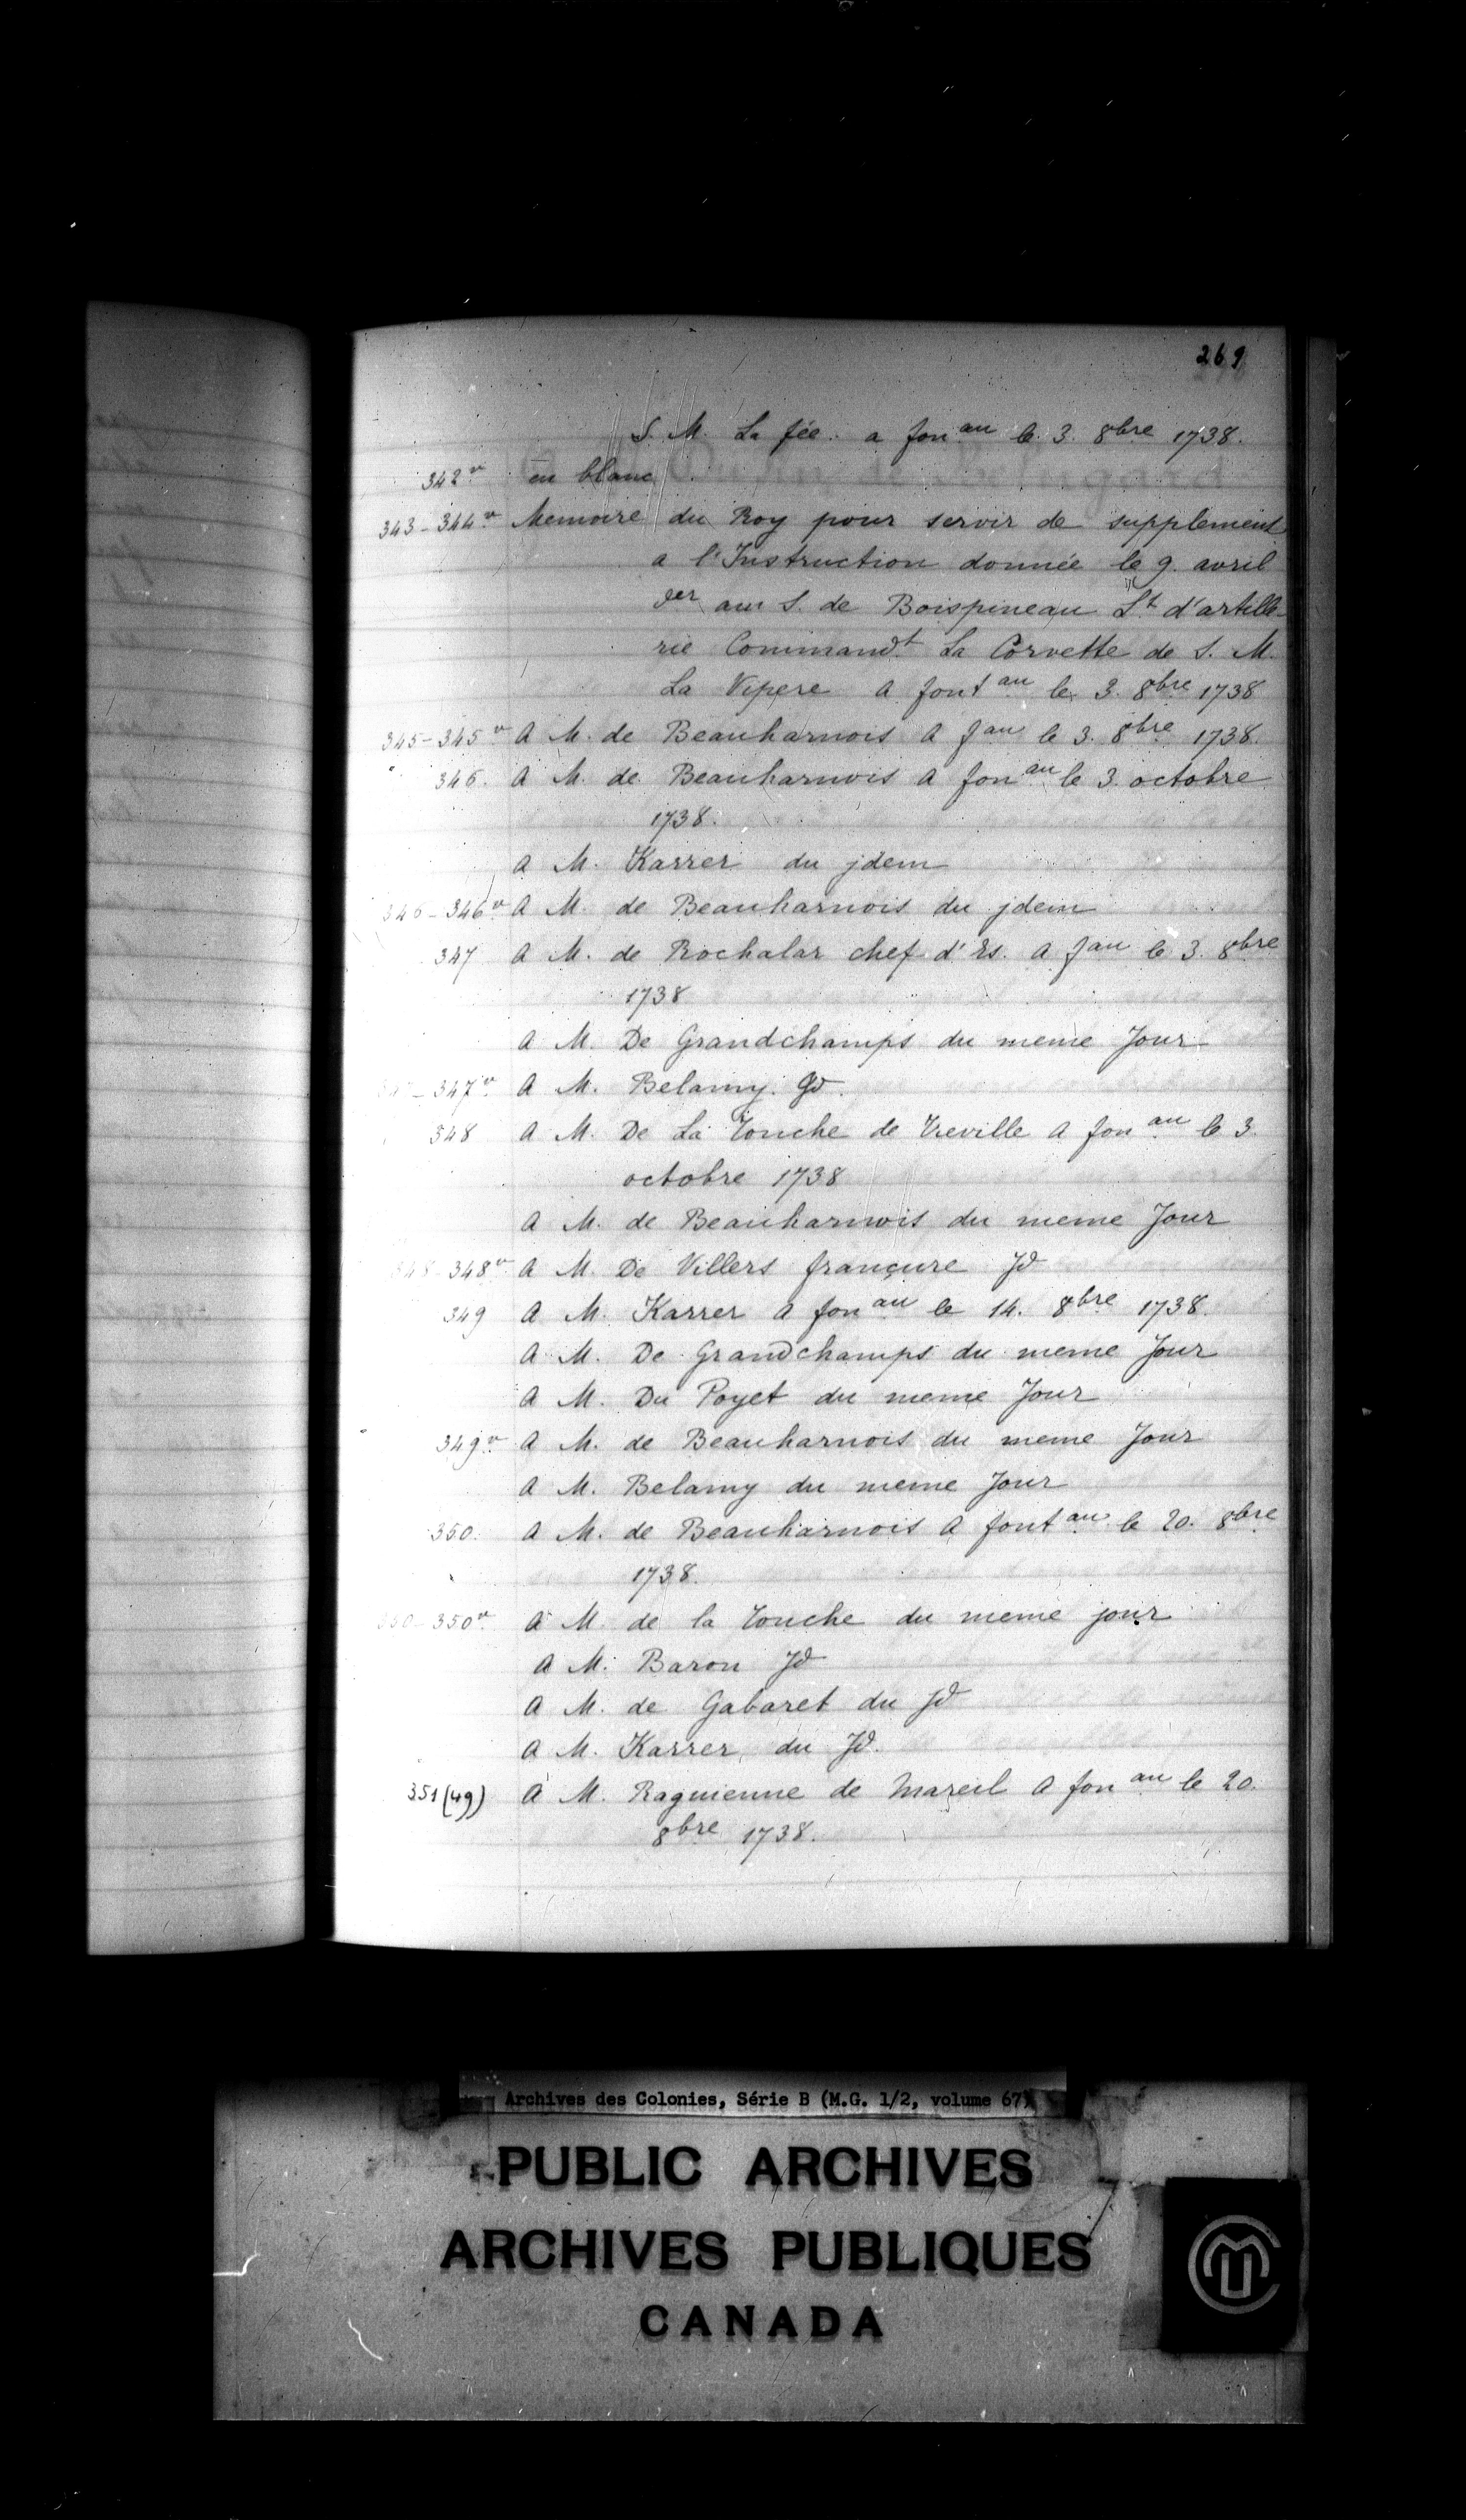 269
S. M. La fée. a fon au le 3. 8bre 1738.
342v en blanc
343-344v Memoire du Roy pour servir de supplement
a l'Instruction donnée le 9. avril
der au S. de Boispineau Lt d'artille-
rie Commandt La Corvette de S. M.
La Vipere a font au le 3. 8bre 1738
345-345v A M. de Beauharnois a f au le 3. 8bre 1738.
346. A M. de Beauharnois a fon au le 3. octobre
1738.
a M. Karrer du jdem
346-346v A M. de Beauharnois du jdem
347 A M. de Rochalar chef d'Es. a f au le 3. 8bre
1738
A M. De Grandchamps du meme Jour
347-347v A M. Belamy Jd.
348 A M. De La Touche de Treville a fon au le 3.
octobre 1738
A M. de Beauharnois du meme Jour
348-348v A M. De Villers françure Jd
349 A M. Karrer a fon au le 14. 8bre 1738.
A M. De Grandchamps du meme Jour
A M. Du Poyet du meme Jour
349v A M. de Beauharnois du meme Jour
A M. Belamy du meme Jour
350. A M. de Beauharnois a font au le 20. 8bre
1738.
350-350v A M. de la Touche du meme jour
A M. Baron Jd
A M. de Gabaret du Jd
A M. Karrer du Jd.
351 (49) A M. Raguienne de Mareil a fon au le 20.
8bre 1738.
Archives des Colonies, Série B (M.G. 1/2, volume 67)
PUBLIC ARCHIVES
ARCHIVES PUBLIQUES
CANADA